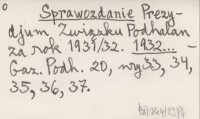 Sprawozdanie Prezy-
djum Związku Podhalan
za rok 1931/32. 1932... –
Gaz. Podh. 20, nry 33, 34,
35, 36, 37.